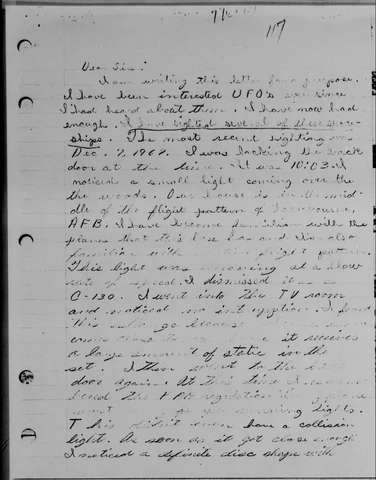 117
Dear Sir:
I am writing this letter for a purpose.
I have been interested UFO's ever since
I had heard about them. I have now had
enough. I have sighted several of these space-
ships. The most recent sighting was
Dec. 7, 1967. I was locking the back
door at the time. It was 10:03. I
noticed a small light coming over the
the woods. Our house is in the mid-
dle of the flight pattern of
AFB. I have become familiar with the
planes that this base has and I'm also
familiar with flight pattern.
This light was incoming at a slow
rate of speed. I dismissed it as a
C-130. I went into the TV room
and noticed no interruption. I found
this because
comes close to it receives
a large amount of static in the
set. I then went to the back
door again. At this time I
the FAA regulation
must running lights.
This didn't even have a collision
light. As soon as it got close enough
I noticed a definite disc shape with